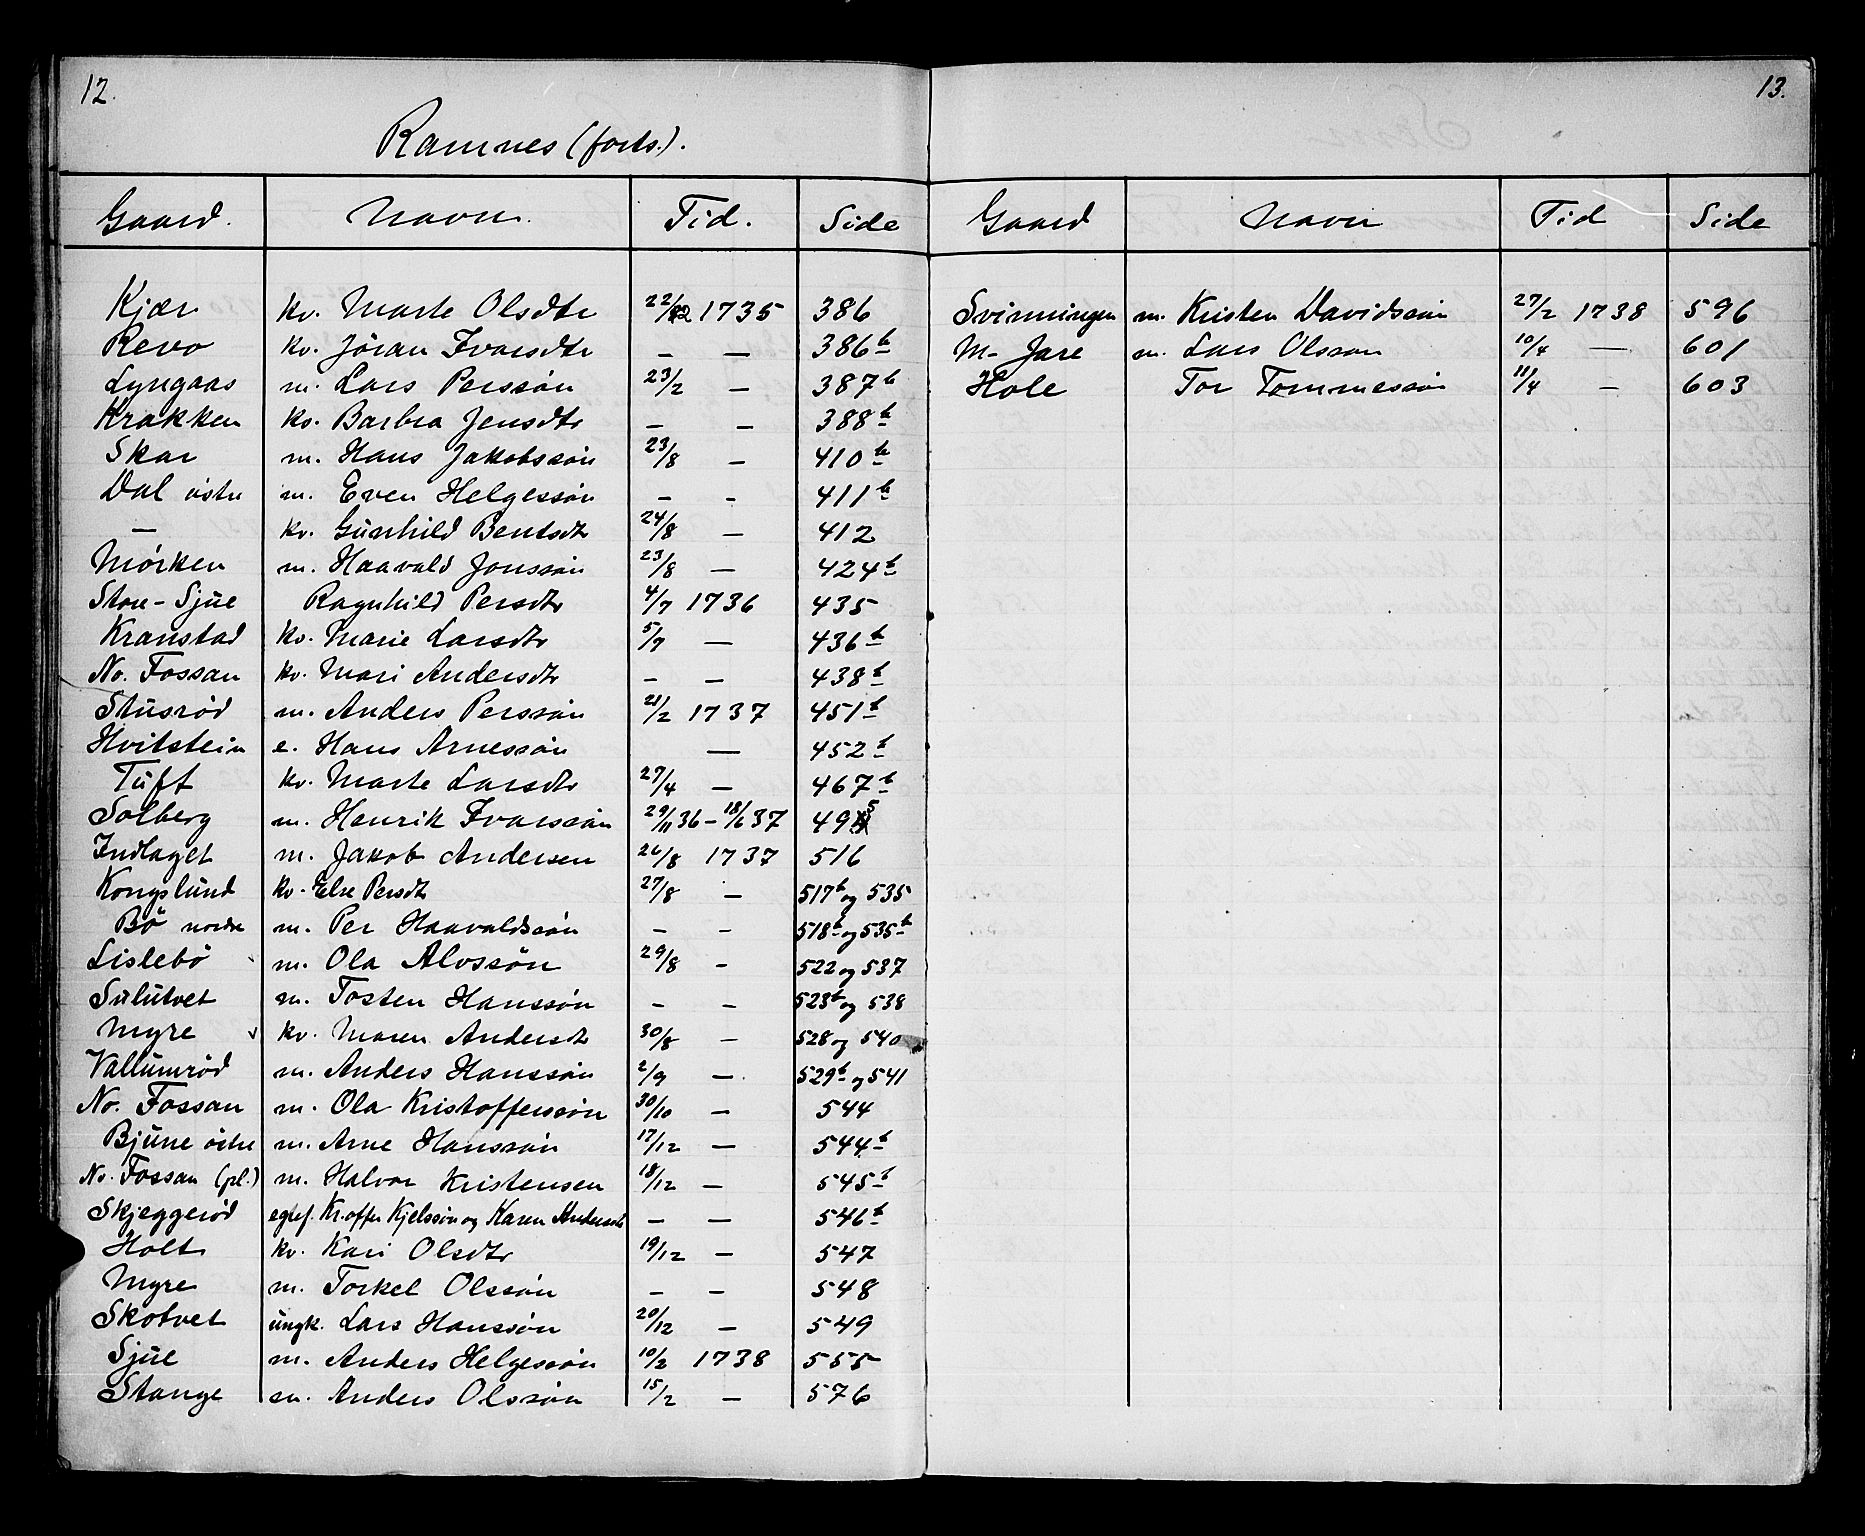 12.
Ramnes (forts.).
Gaard. Navn. Tid. Side
Kjær kv. Marte Olsdtr 22/2 1735 386
Revo kv. Jöran Ivarsdtr — — 386b
Lyngaas m. Lars Perssön 23/2 — 387b
Krakken kv. Barbra Jensdtr — — 388b
Skar m. Hans Jakobssön 23/8 — 410b
Dal östre m. Even Helgessön — - 411b
— kv. Gunhild Bentsdtr 24/8 — 412
Mörken m. Haavald Jonssön 23/8 — 424b
Store-Sjue Ragnhild Persdtr 4/7 1736 435
Kranstad kv. Marie Larsdtr 5/7 — 436b
No. Fossan kv. Mari Andersdtr — — 438b
Stusröd m. Anders Perssön 21/2 1737 451b
Hvitstein e. Hans Arnessön — 452b
Tuft kv. Marte Larsdtr 27/4 — 467b
Solberg m. Henrik Ivarssön 29/11 36 - 18/6 37 495
Indlaget m. Jakob Andersen 26/8 1737 516
Kongslund kv. Else Persdtr 27/8 — 517b og 535
Bö nordre m. Per Haavaldssön — - 518b og 535b
Lislebö m. Ola Alvssön 29/8 - 522 og 537
Sulutvet m. Tosten Hanssön — — 523b og 538
Myre v kv. Maren Andersdtr 30/8 — 528 og 540
Vallumröd m. Anders Hanssön 2/9 — 529b og 541
No. Fossan m. Ola Kristofferssön 30/10 — 544
Bjune östre m. Arne Hanssön 17/12 — 544b
No. Fossan (pl.) m. Halvor Kristensen 18/12 — 545b
Skjeggeröd egtef. Kr.offer Kjelssön og Karen Andersdtr — — 546b
Holt kv. Kari Olsdtr 19/12 — 547
Myre m. Torkel Olssön — — 548
Skotvet ungk. Lars Hanssön 20/12 — 549
Sjue m. Anders Helgessön 10/2 1738 555
Stange m. Anders Olssön 15/2 — 576
13.
Gaard Navn Tid Side
Svinningen m. Kristen Davidssön 27/2 1738 596
M-Jare m. Lars Olsson 10/4 — 601
Hole Tor Tommessön 11/4 — 603